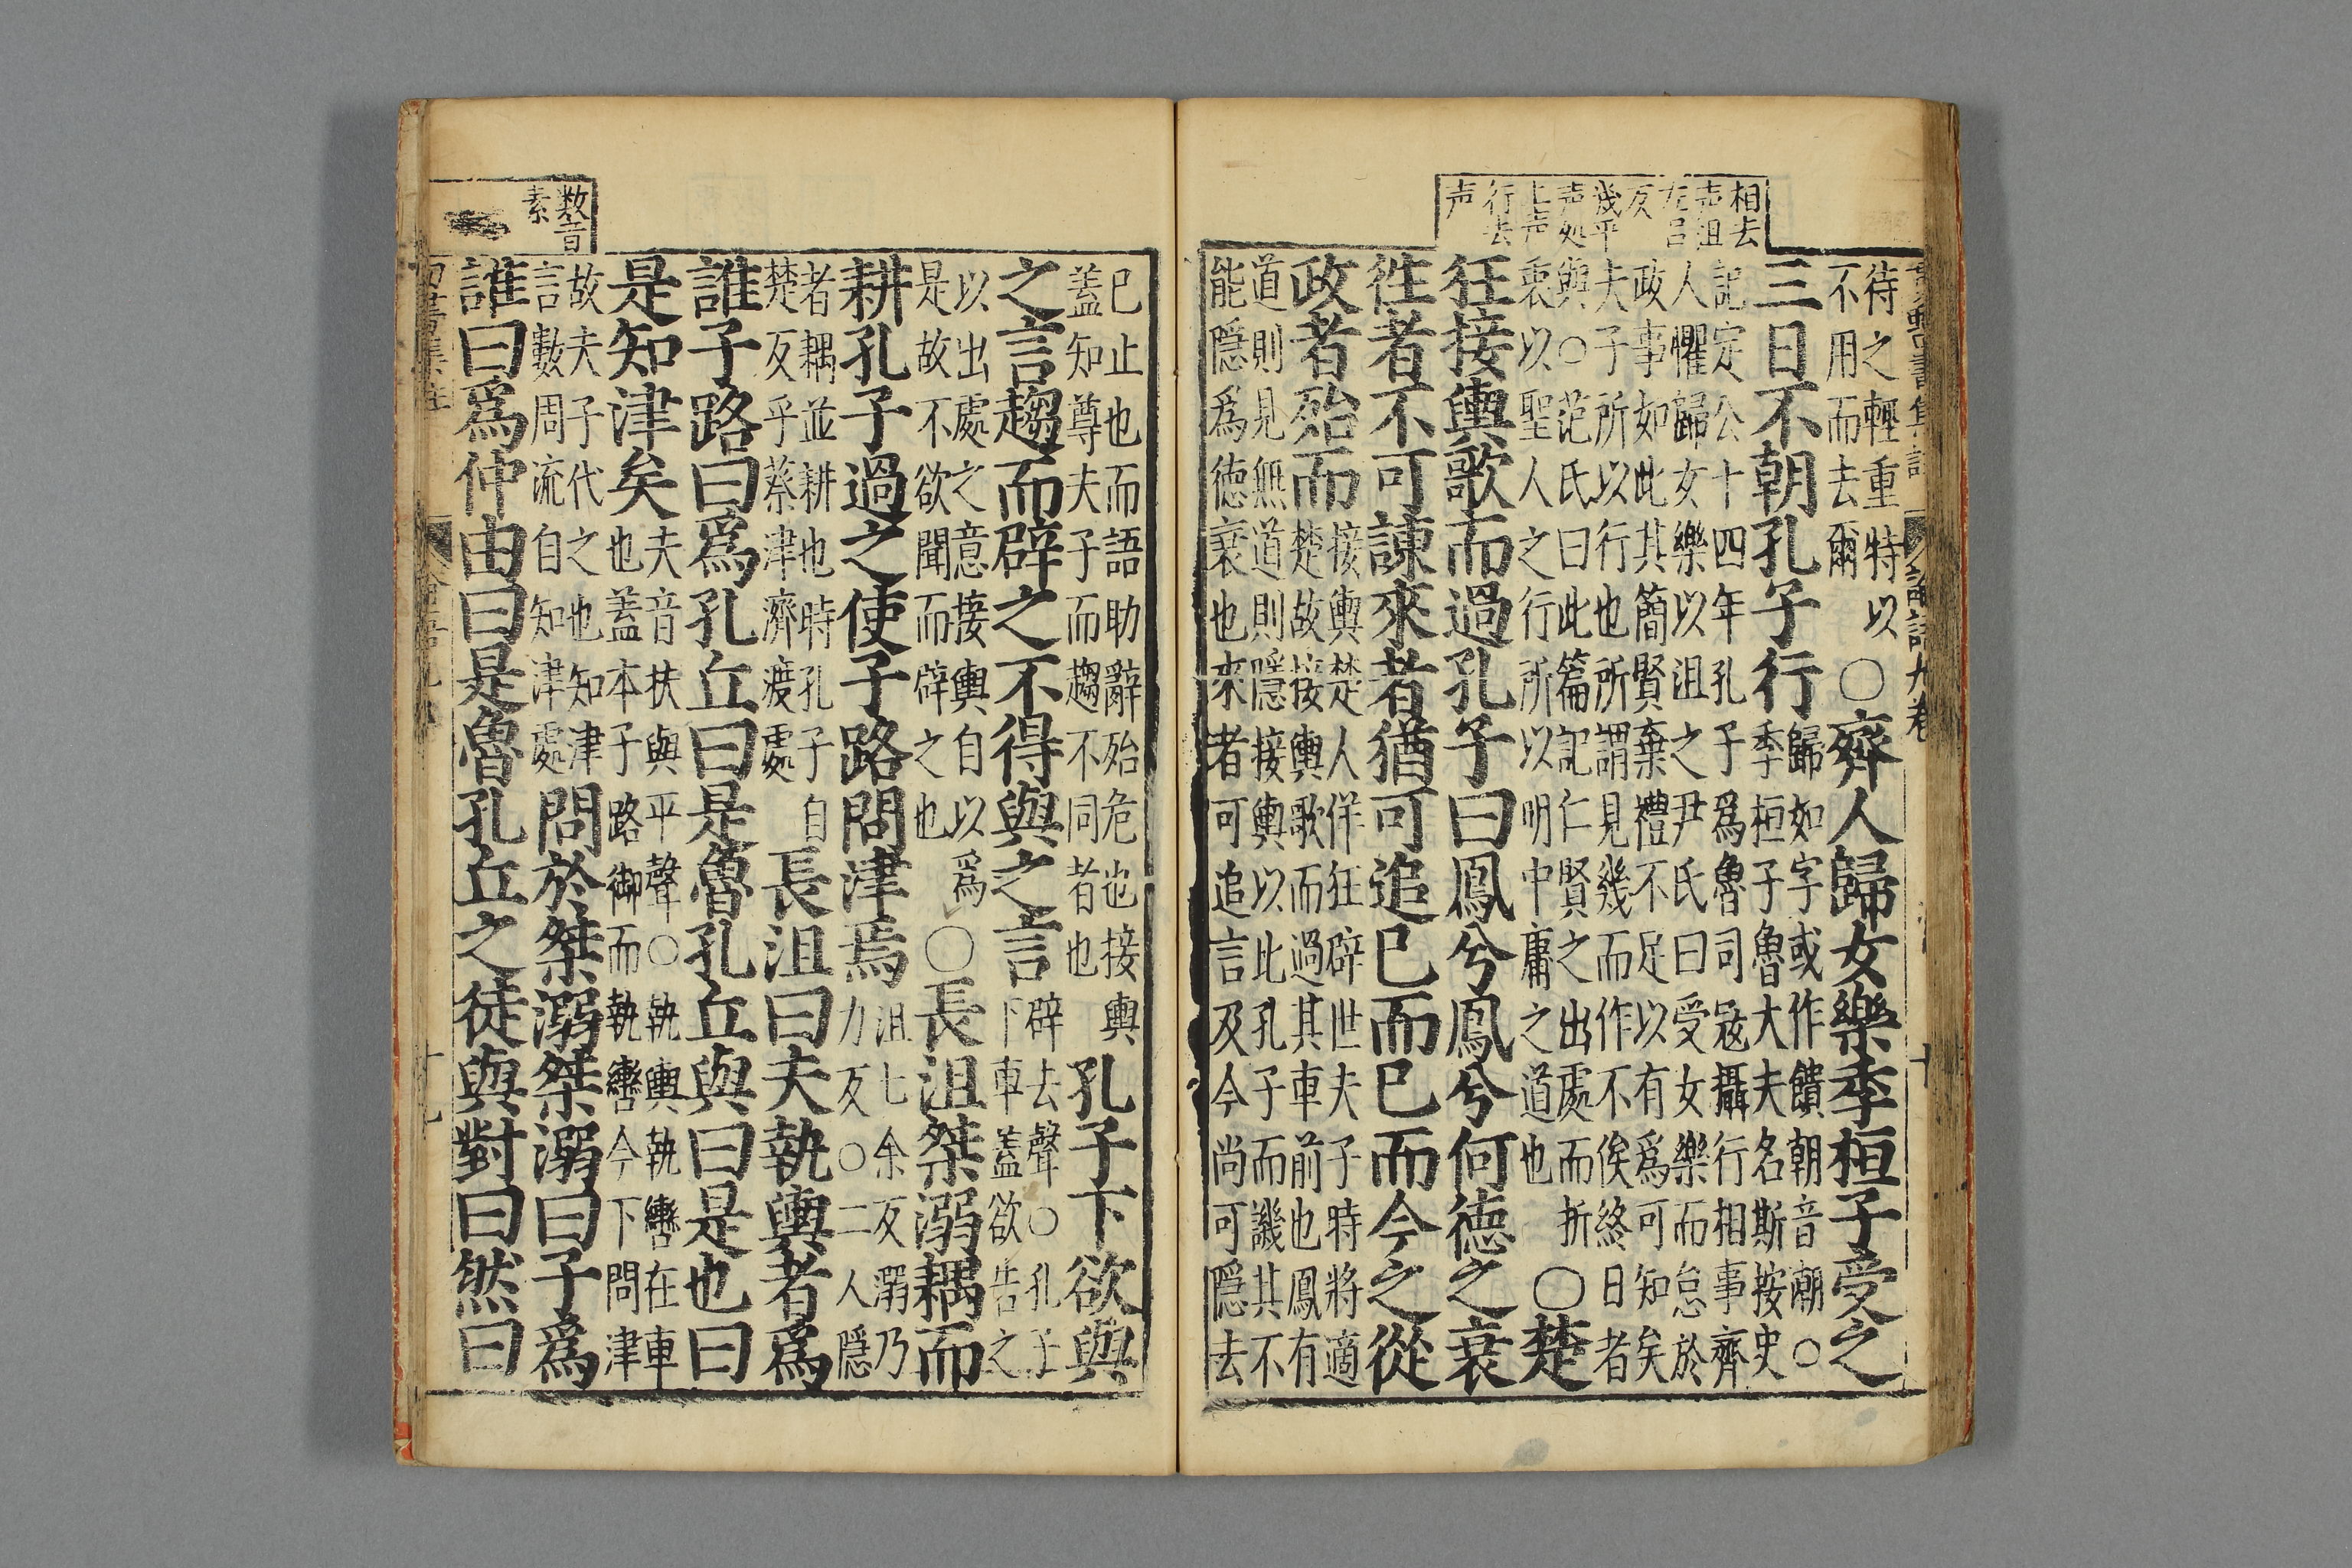 相去
声沮
在呂
反
幾平
声処
上声
行去
声
待之輕重特以
不用而去爾
○齊人歸女樂季桓子受之
三日不朝孔子行
歸如字或作饋朝音潮○
季桓子魯大夫名斯按史
記定公十四年孔子爲魯司寇攝行相事齊
人懼歸女樂以沮之尹氏曰受女樂而怠於
政事如此其簡賢棄禮不足以有爲可知矣
夫子所以行也所謂見幾而作不俟終日者
與○范氏曰此篇記仁賢之出處而折
衷以聖人之行所以明中庸之道也
○楚
狂接輿歌而過孔子曰鳳兮鳳兮何德之衰
徃者不可諫來者猶可追已而已而今之從
政者殆而
接輿楚人佯狂辟世夫子時將適
楚故接輿歌而過其車前也鳳有
道則見無道則隱接輿以此孔子而譏其不
能隱爲德衰也來者可追言及今尚可隱去
数音
素
已止也而語助辭殆危也接輿
蓋知尊夫子而趨不同者也
孔子下欲與
之言趨而辟之不得與之言
辟去聲○孔子
下車蓋欲告之
以出處之意接輿自以爲
是故不欲聞而辟之也
○長沮桀溺耦而
耕孔子過之使子路問津焉
沮七余反溺乃
力反○二人隱
者耦並耕也時孔子自
楚反乎蔡津濟渡處
長沮曰夫執輿者爲
誰子路曰爲孔丘曰是魯孔丘與曰是也曰
是知津矣
夫音扶與平聲○執輿執轡在車
也蓋本子路御而執轡今下問津
故夫子代之也知津
言數周流自知津處
問於桀溺桀溺曰子爲
誰曰爲仲由曰是魯孔丘之徒與對曰然曰